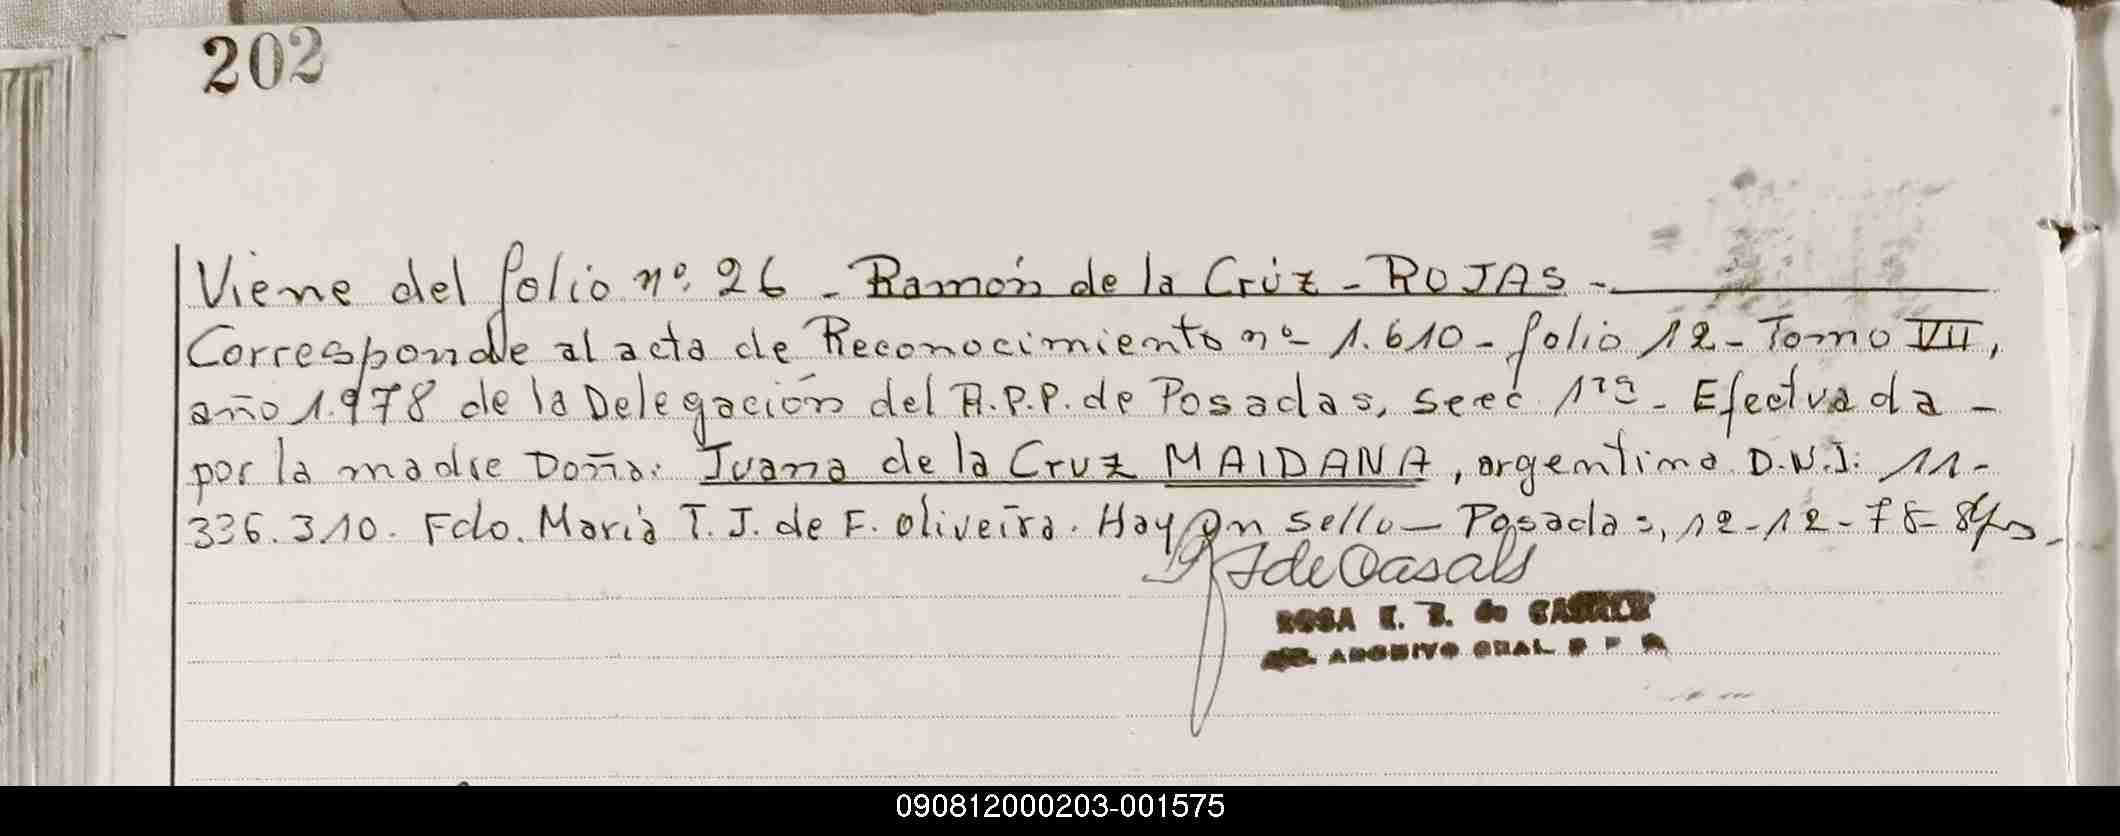 202
Viene del folio nº. 26 - Ramón de la Crúz - ROJAS -
Corresponde al acta de Reconocimiento nº 1.610 - folio 12 - Tomo VII,
año 1.978 de la Delegación del R.P.P. de Posadas, secc 1ra - Efectuada -
por la madre Doña: Juana de la Cruz MAIDANA, argentina D.N.I: 11-
336.310. Fdo. María T. J. de F. Oliveira. Hay un sello - Posadas, 12-12-78-
de Casals
ROSA E. Z. de CASALS
ARCHIVO GRAL R P P
090812000203-001575